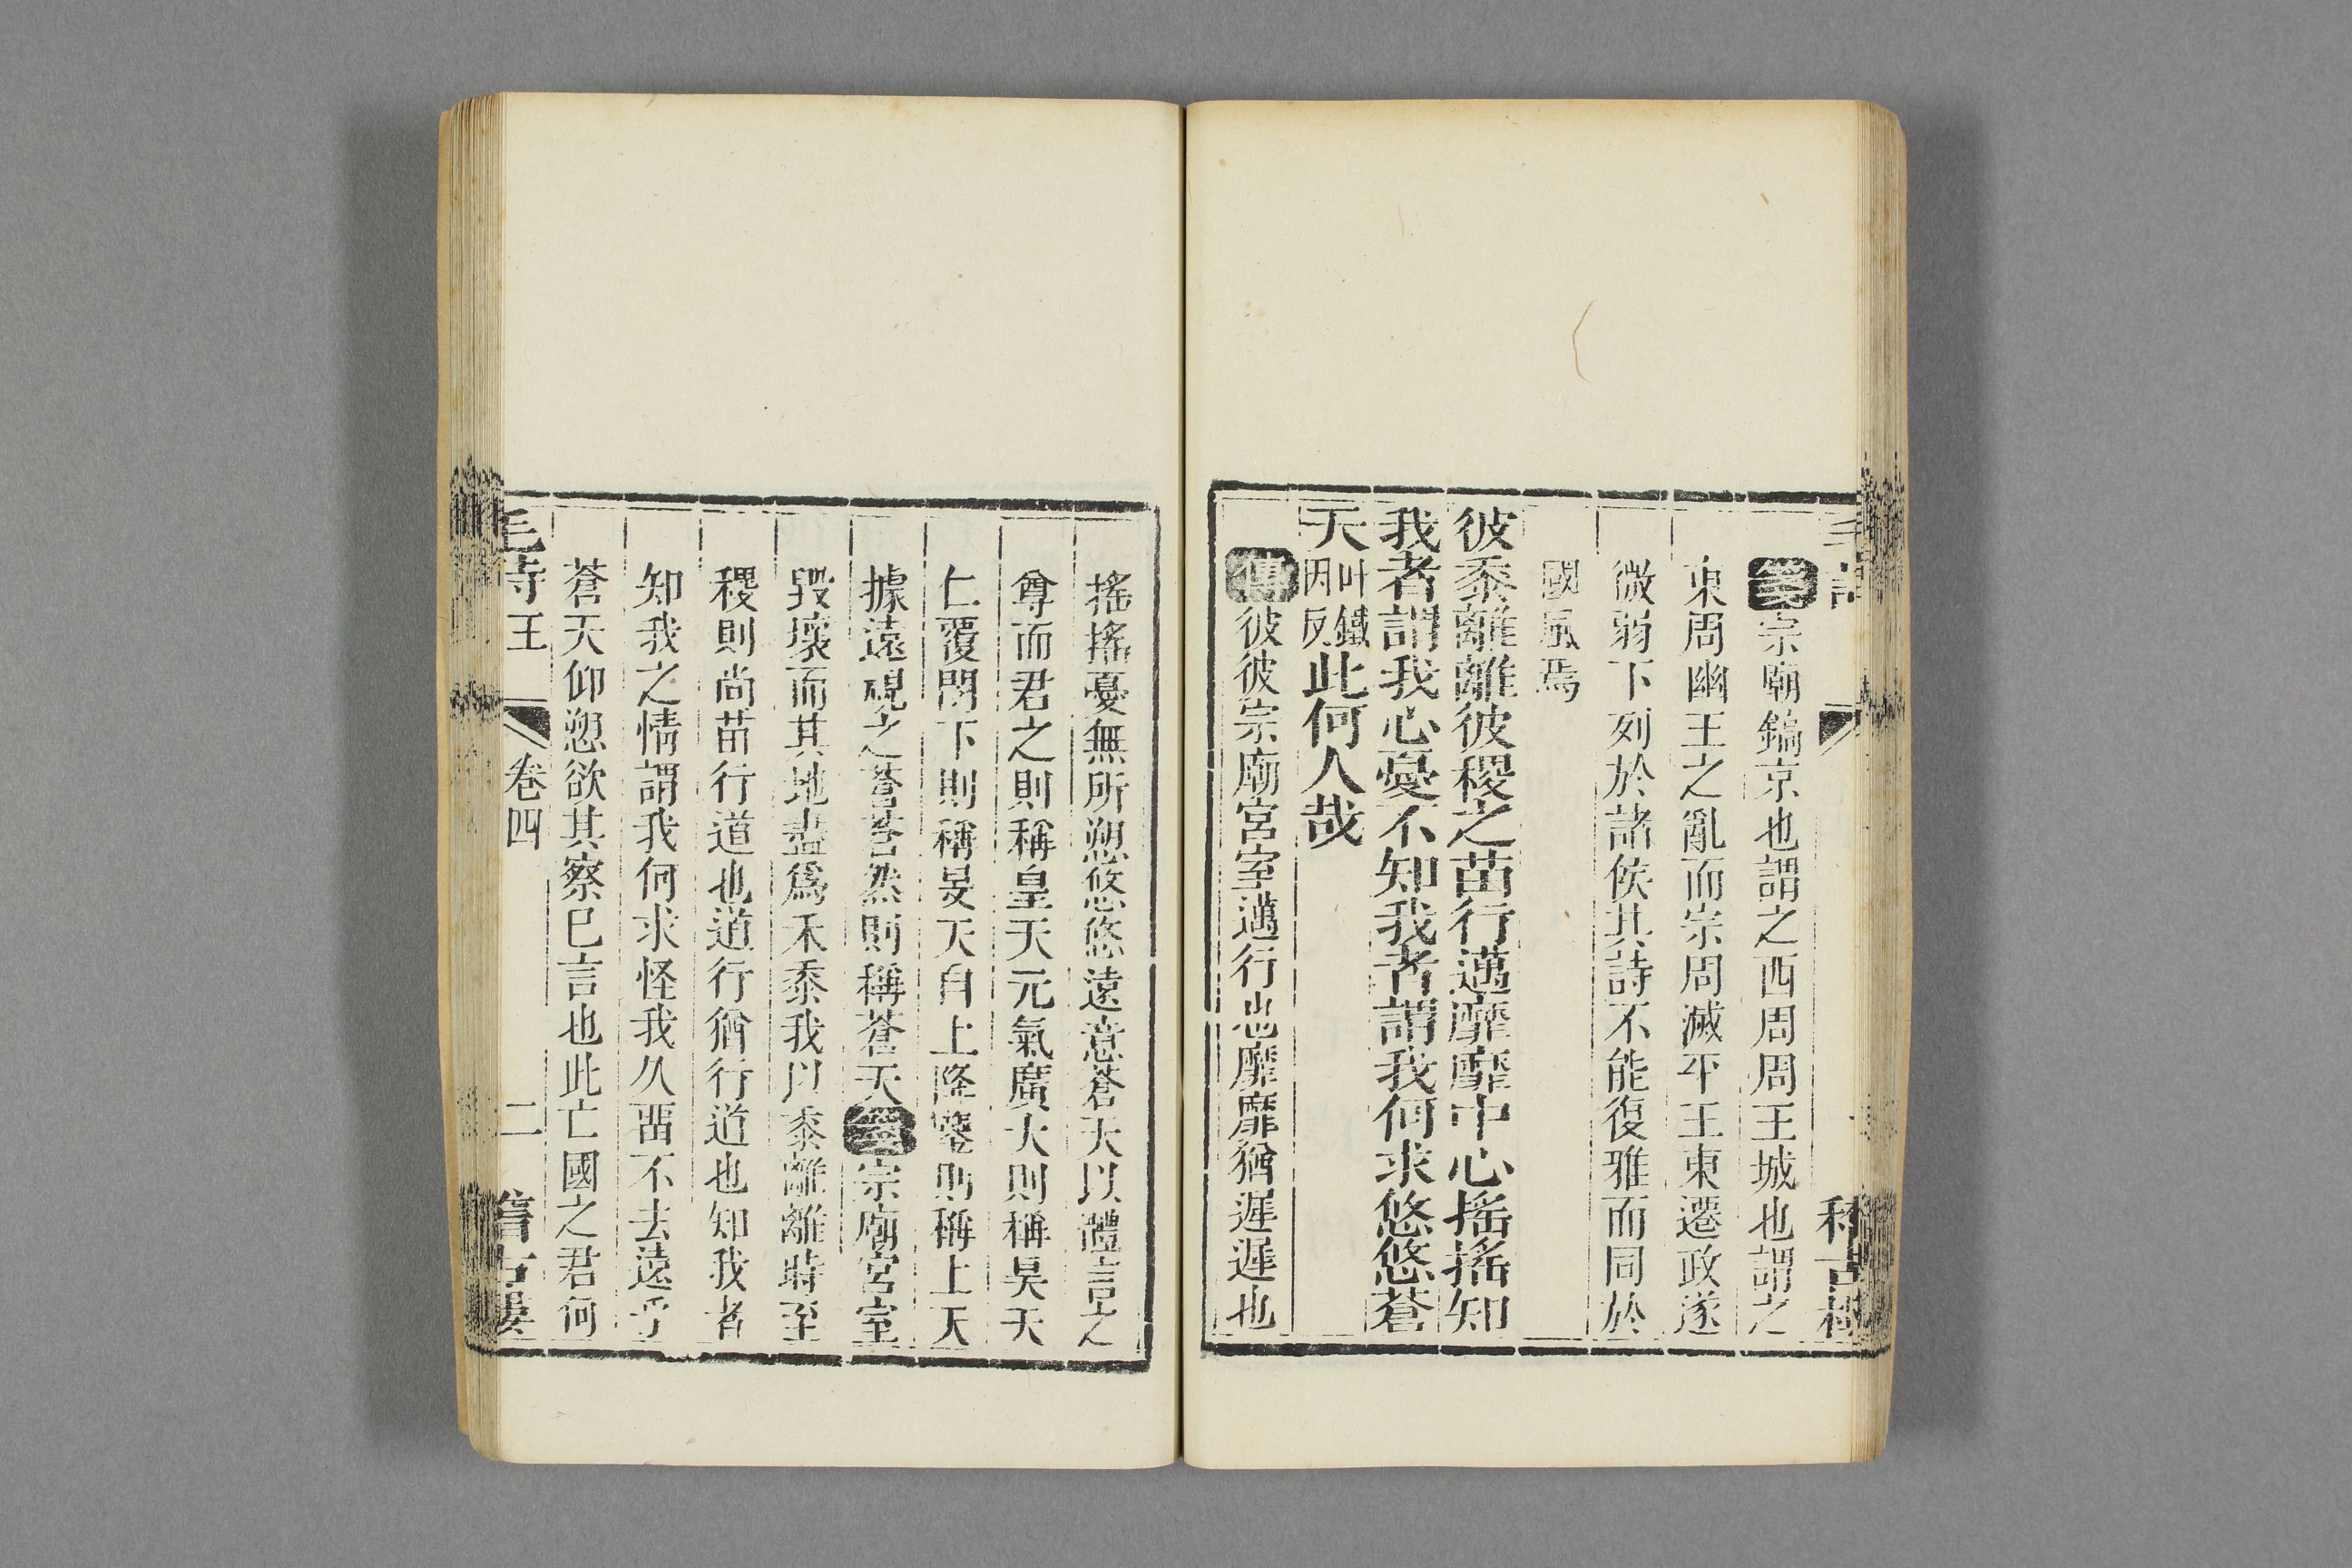 毛詩
箋宗廟鎬京也謂之西周周王城也謂之
東周幽王之亂而宗周滅平王東遷政遂
微弱下列於諸侯其詩不能復雅而同於
國風焉
彼黍離離彼稷之苗行邁靡靡中心搖搖知
我者謂我心憂不知我者謂我何求悠悠蒼
天叶鐵因反此何人哉
傳彼彼宗廟宮室邁行也靡靡猶遲遲也
搖搖憂無所愬悠悠遠意蒼天以體言之
尊而君之則稱皇天元氣廣大則稱昊天
仁覆閔下則稱旻天自上降鑒則稱上天
據遠視之蒼蒼然則稱蒼天箋宗廟宮室
毀壞而其地盡爲禾黍我以黍離離時至
稷則尚苗行道也道行猶行道也知我者
知我之情謂我何求怪我久畱不去遠乎
蒼天仰愬欲其察巳言也此亡國之君何
毛詩王 卷四 二 稽古樓